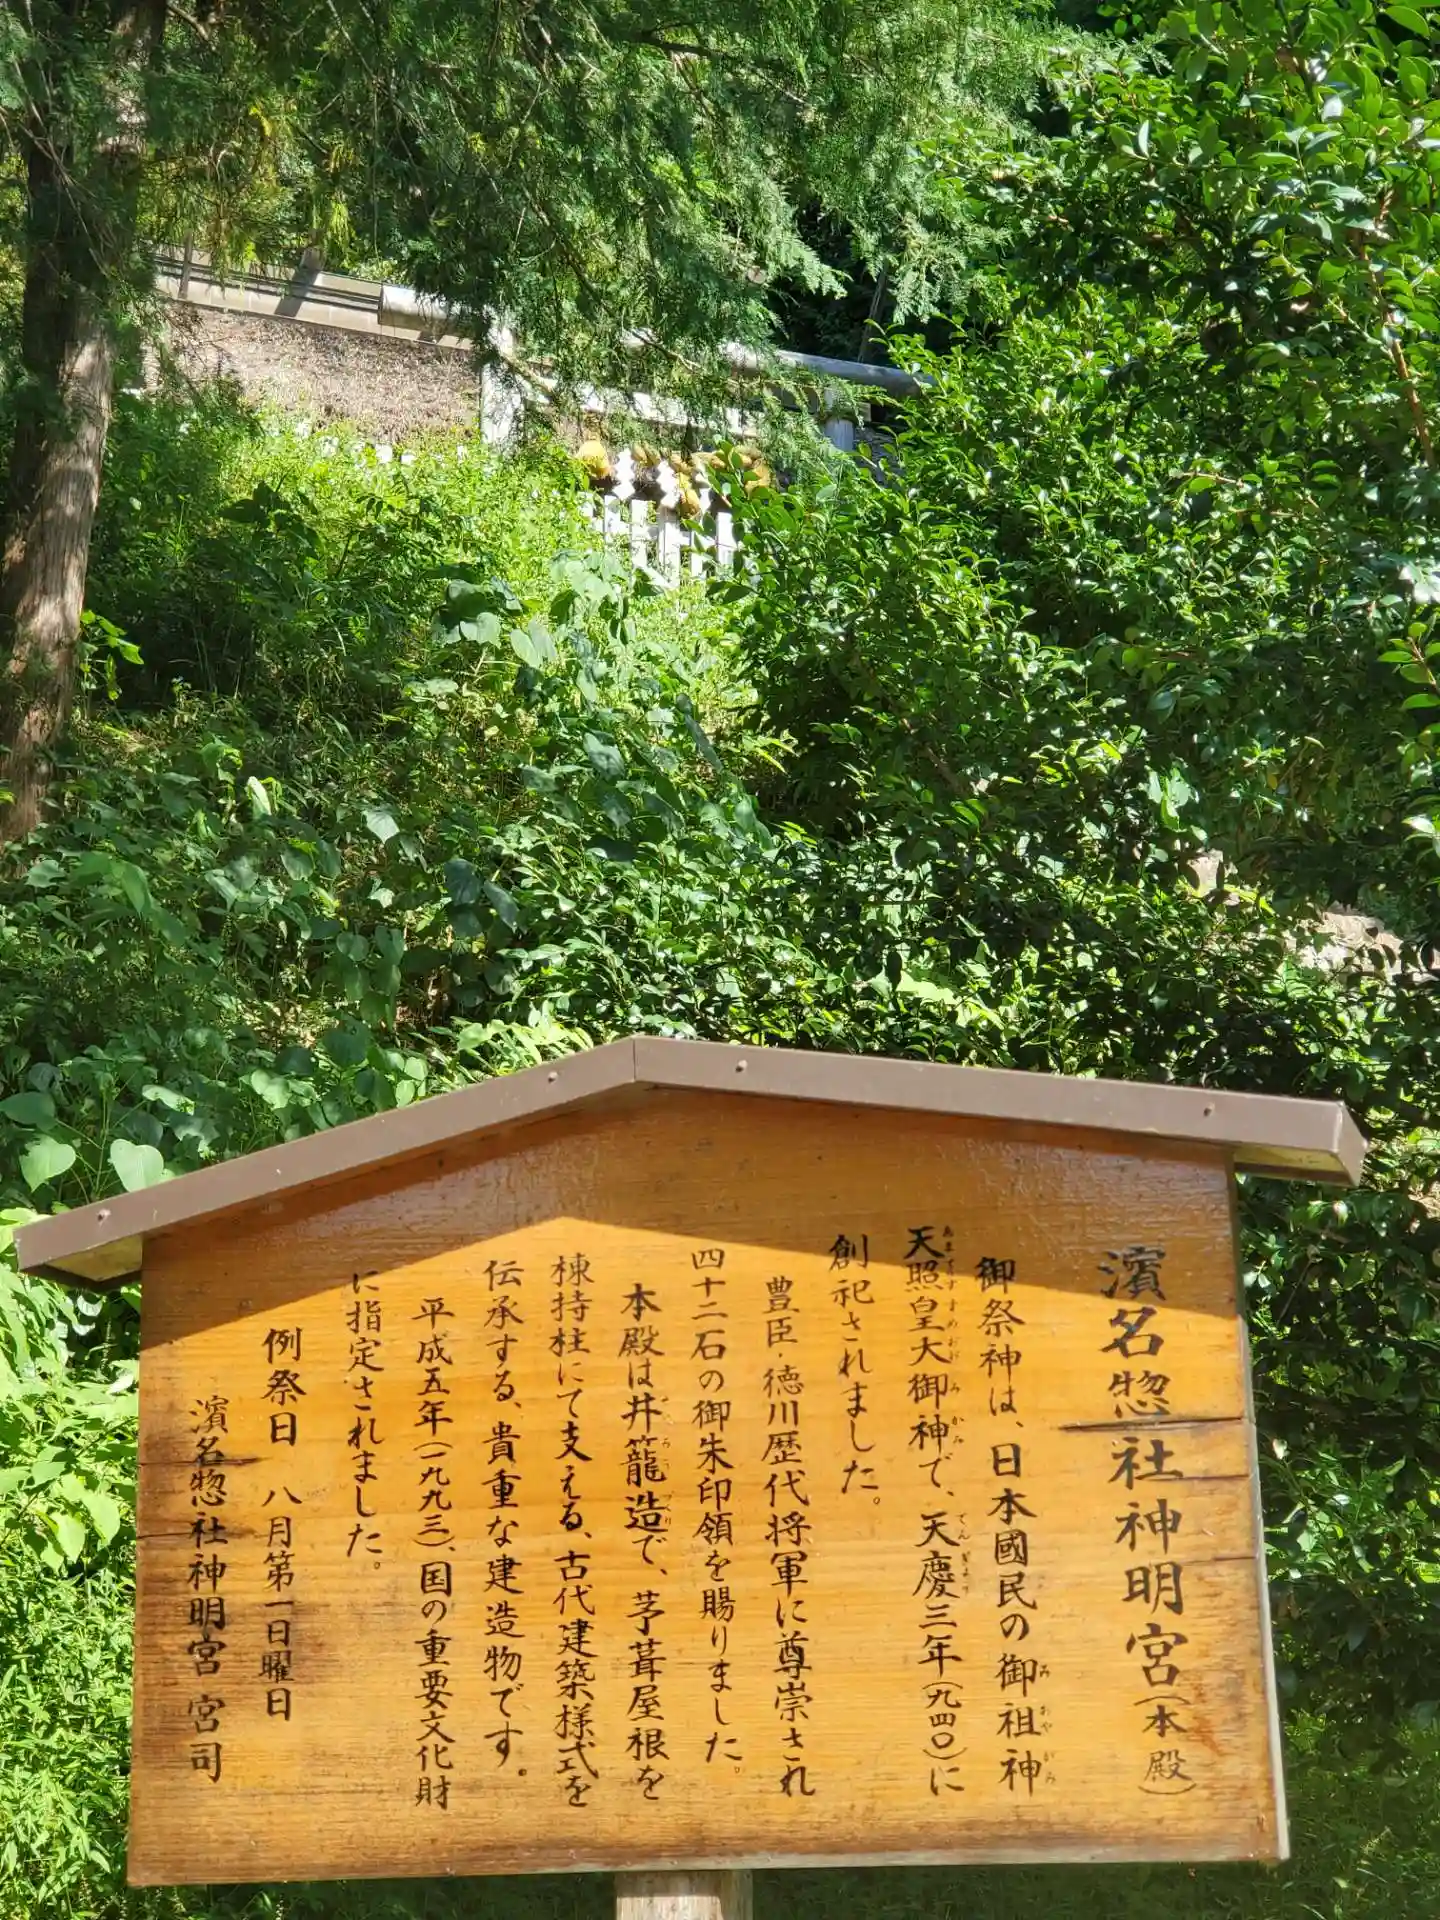 濱名惣社神明宮(本殿)
御祭神は、日本國民の御祖神
天照皇大御神で、天慶三年(九四〇)に
創祀されました。
豊臣・徳川歴代将軍に尊崇され
四十二石の御朱印領を賜りました。
本殿は井籠造で、茅葺屋根を
棟持柱にて支える、古代建築様式を
伝承する、貴重な建造物です。
平成五年(一九九三)、国の重要文化財
に指定されました。
例祭日 八月第一日曜日
濱名惣社神明宮 宮司